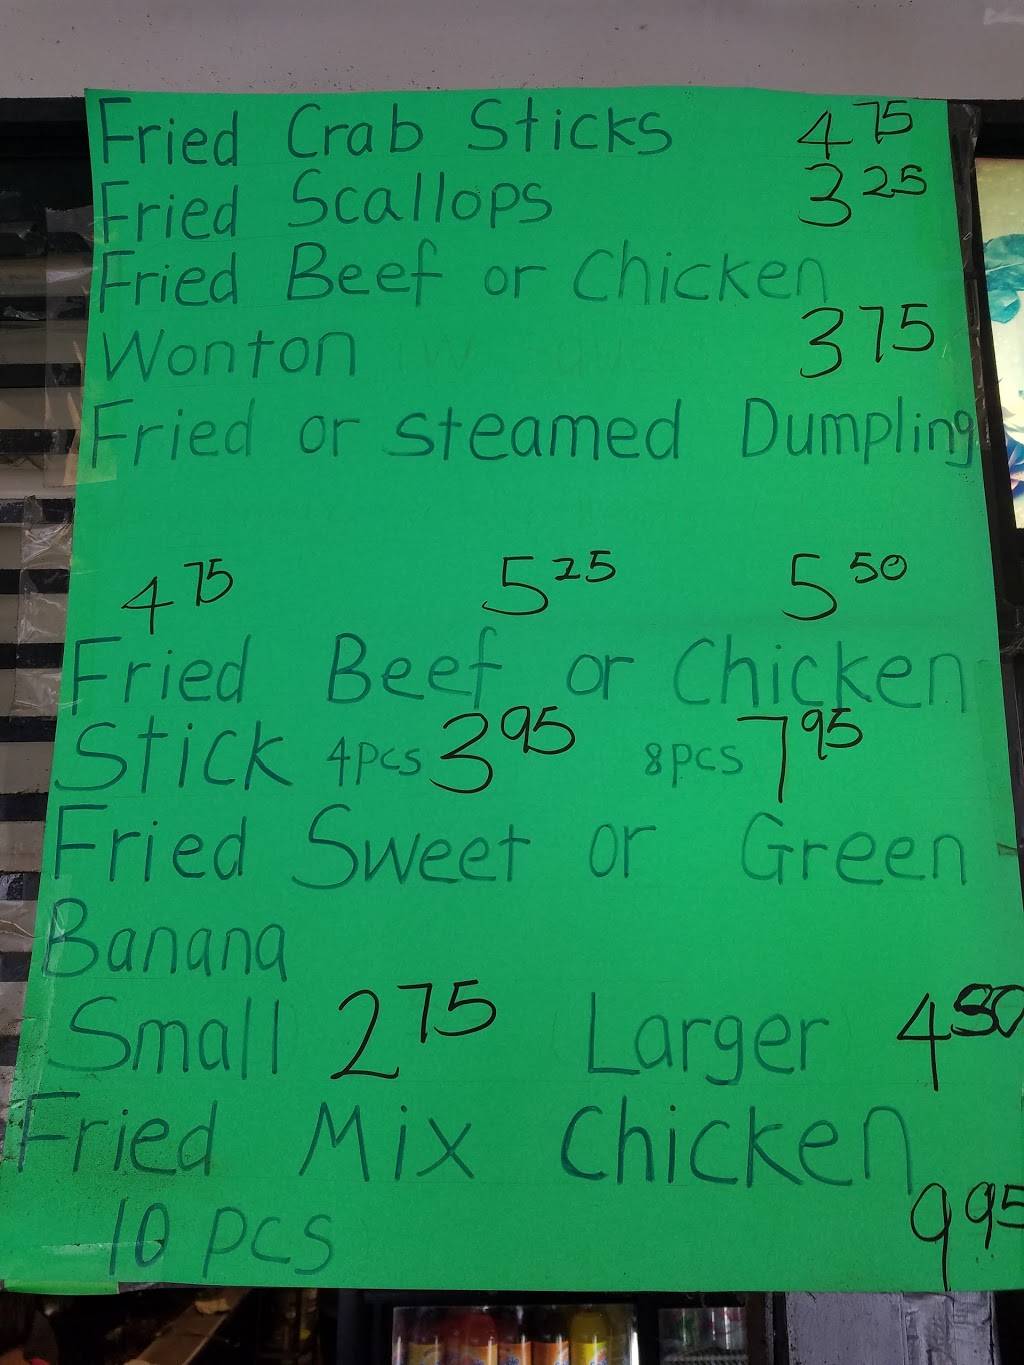 Fried Crab Sticks 4 75
Fried Scallops 3 25
Fried Beef or Chicken
Wonton 3 75
Fried or steamed Dumpling
4 75 5 25 5 50
Fried Beef or Chicken
Stick 4pcs 3 95 8pcs 7 95
Fried Sweet or Green
Banana
Small 2 75 Larger 4 50
Fried Mix Chicken
10 pcs 9 95